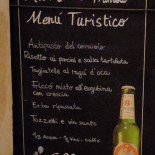 Menú Turistico
Antipasto del corsaro
Risotto ai porcini e salsa tartufata
Tagliatelle al ragù d'oca
Fricco misto all'eugubina
con crescia
Erba ripassata
Tozzetti e vin santo
½ Acqua - ¼ Vino - caffè